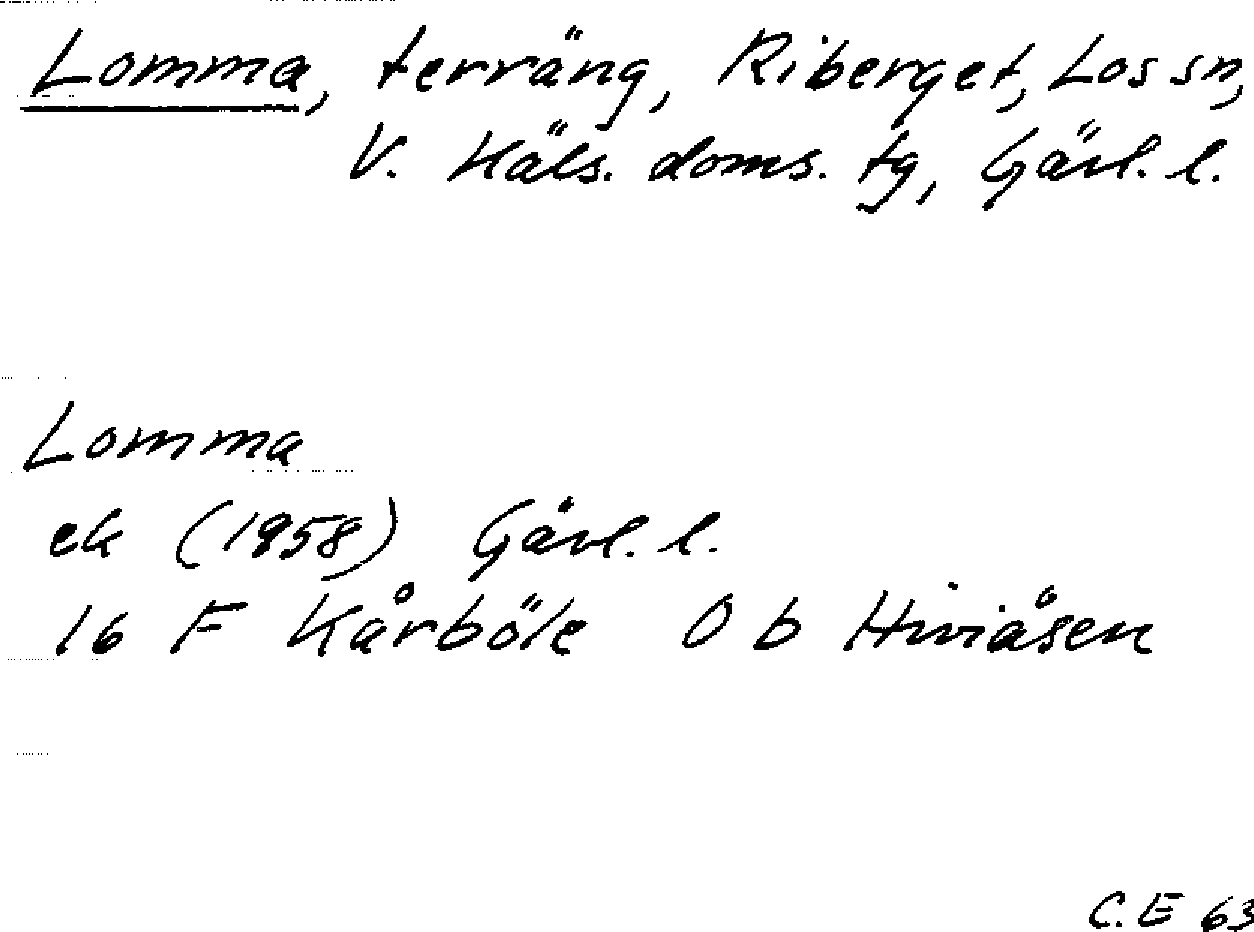 Lomma, terräng, Riberget, Los sn,
V. Häls. doms. tg, Gävl. l.
Lomma
ek (1958) Gävl. l.
16 F Kårböle 0 b Hiviåsen
C.E 63